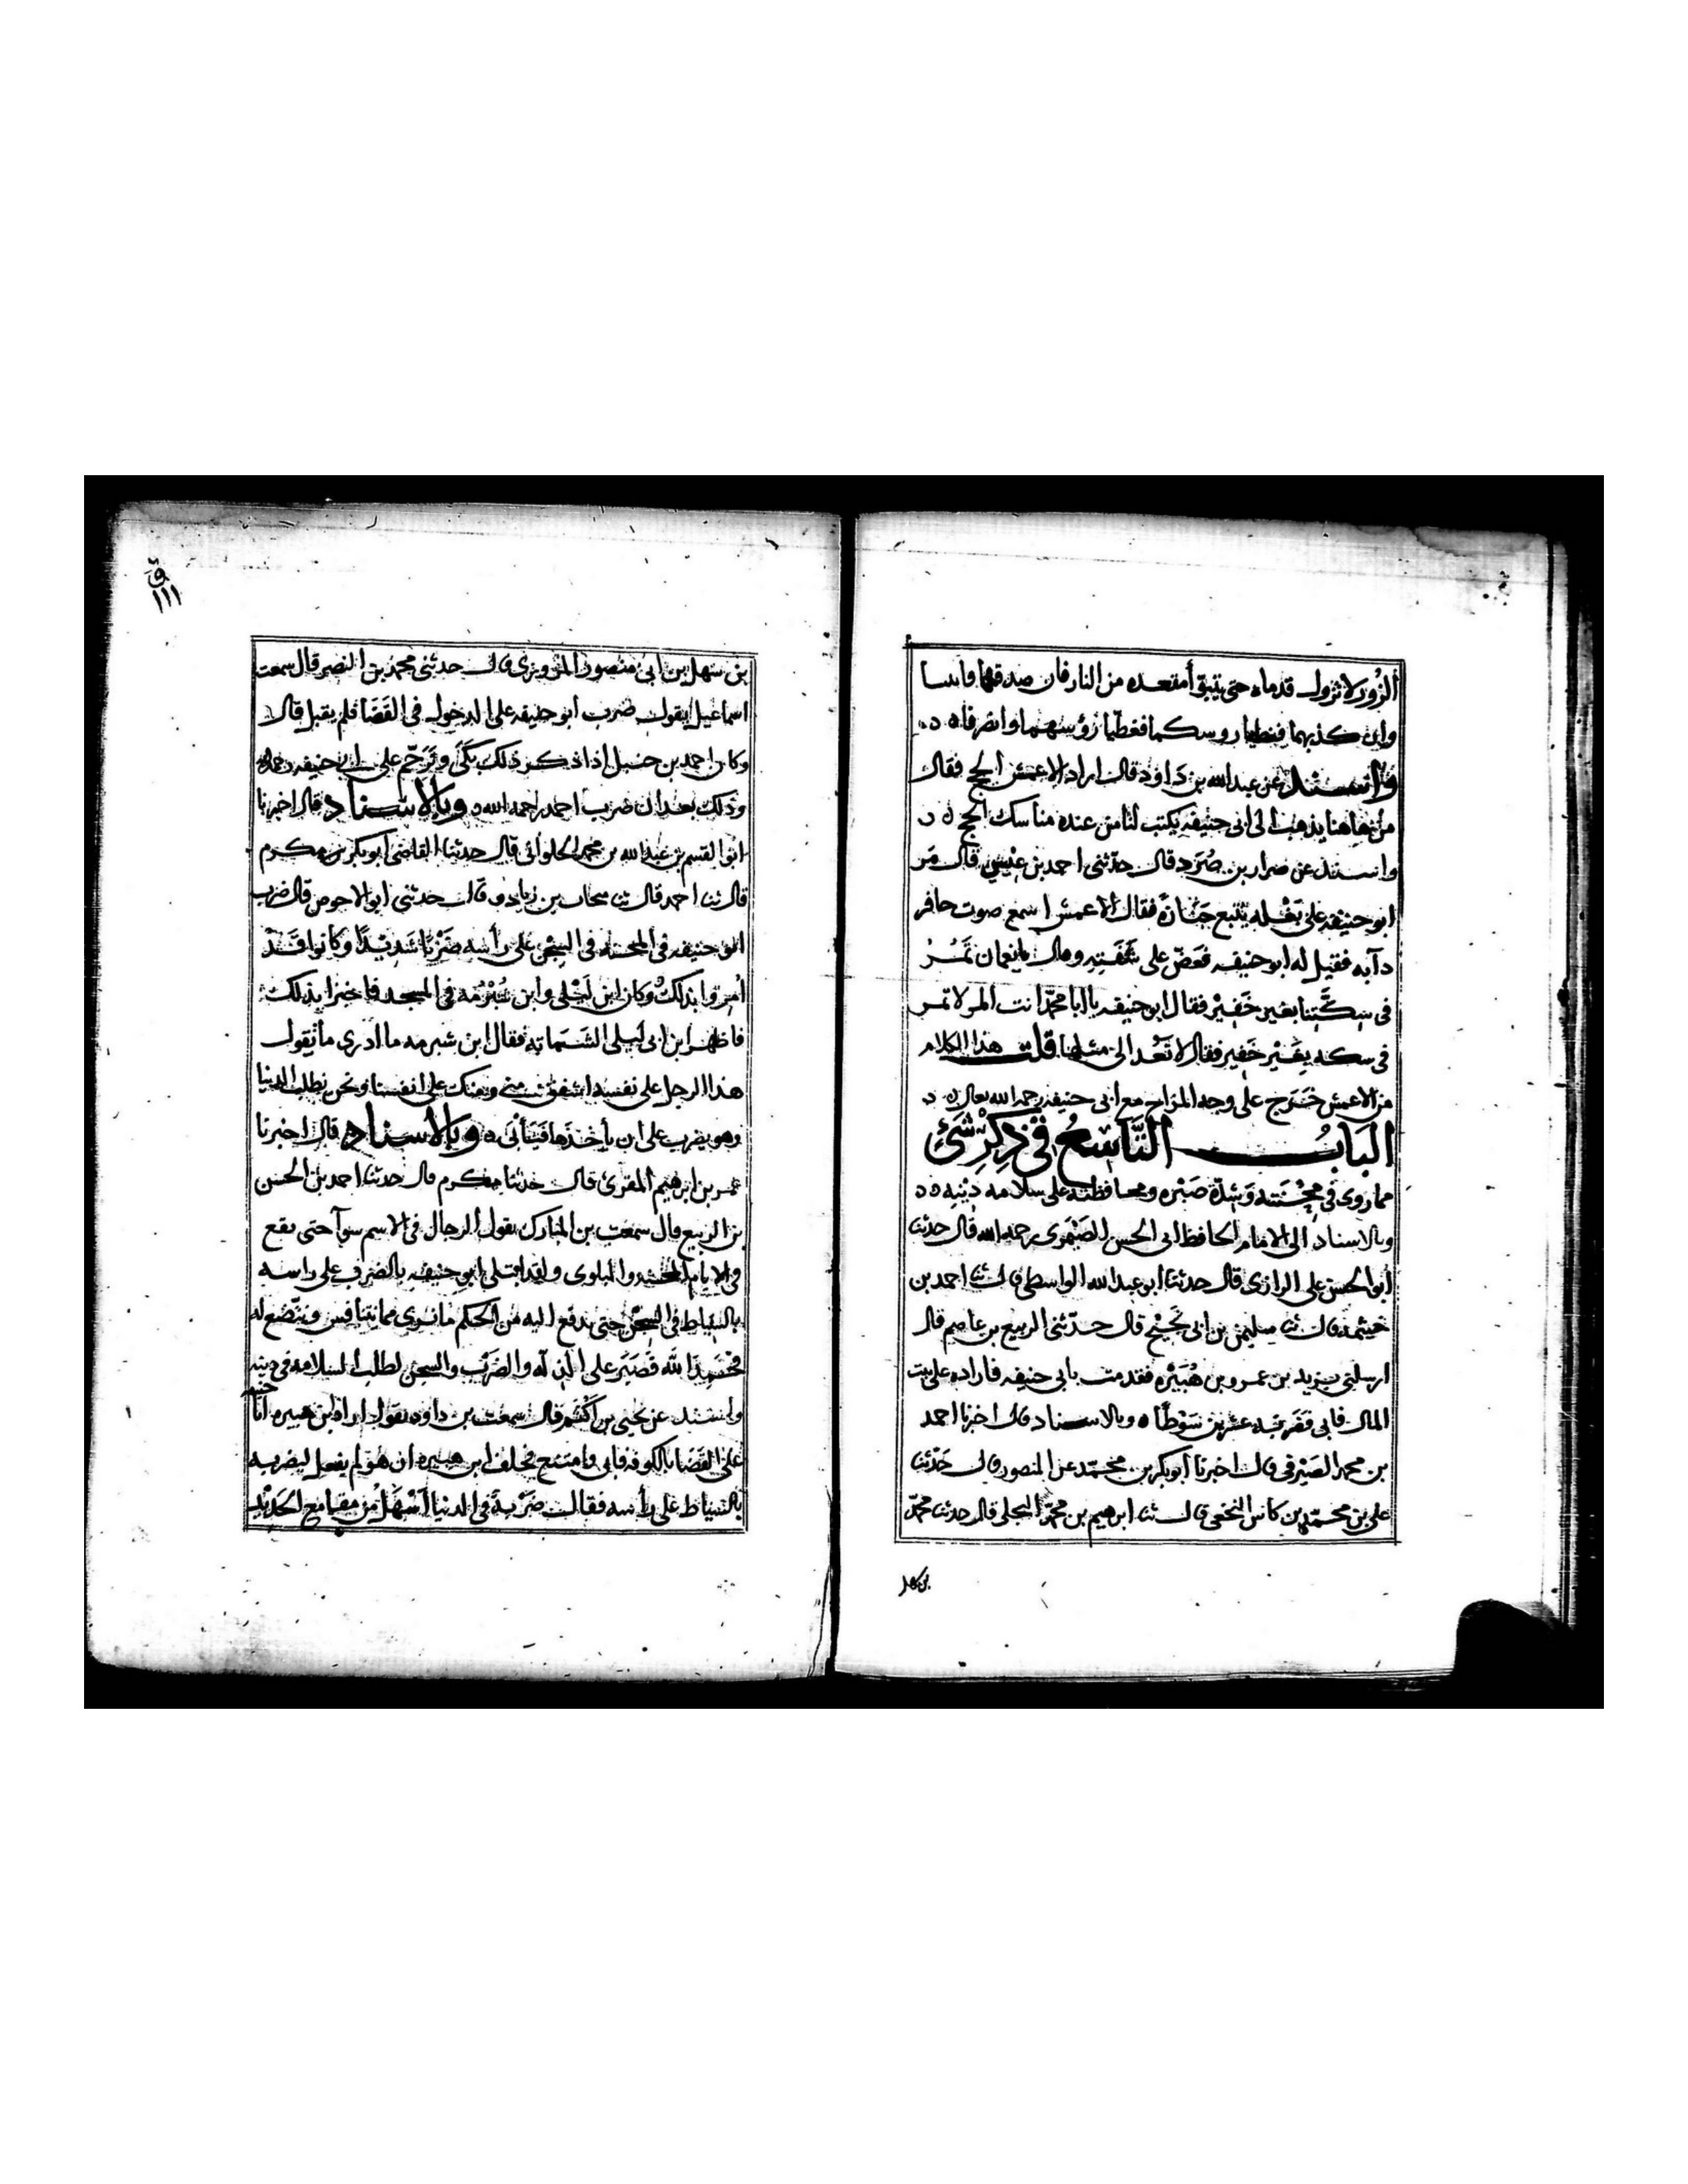 الزور لا تزول قدماه حتى يتبوأ مقعده من النار فان صدقتما فاثبتا
وان كذبتما فغطيا روسكما فغطيا رؤسهما وانصرفا ه د
واسند عن عبد الله بن داود قال اراد الاعمش الحج فقال
من هاهنا يذهب الى ابى حنيفه يكتب لنا من عنده مناسك الحج ه د
واسند عن ضرار بن صرد قال حدثنى احمد بن قال مر
ابو حنيفه على بغله يتبع جنازة فقال الاعمش اسمع صوت حافر
دآبه فقيل له ابو حنيفه فعض على شفتيه وقال يا نعمان تمر
فى سكتنا بغير خفير فقال ابو حنيفه يا ابا محمد انت المر لا تمر
فى سكه بغير خفير فقال لا تعد الى مثلها قلت هذا الكلام
من الاعمش خرج على وجه المزاح مع ابى حنيفه رحمه الله تعالى ه د
الباب التاسع فى ذكر شئ
مما روى فى محنته وشدة صبره ومحافظته على سلامه دينه ه د
وبالاسناد الى الامام الحافظ ابى الحسن الصيمرى رحمه الله قال حدثنا
ابو الحسن على الرازى قال حدثنا ابو عبد الله الواسطى قال ثنا احمد بن
خيثمه قال ثنا سليمن بن ابى قال حدثنى الربيع بن عاصم قال
ارسلنى يزيد بن عمرو بن هبيره فقدمت بابى حنيفه فاراده على بيت
المال فابى فضربه عشرين سوطا ه وبالاسناد قال اخبرنا احمد
بن محمد الصيرفى قال اخبرنا ابو بكر بن محمد عن المنصور قال حدثنا
على بن محمد بن كاس النخعى قال ثنا ابرهيم بن محمد البجلى قال حدثنا محمد
بن سهل
ق
١١١
بن سهل بن ابى منصور المروزى قال حدثنى محمد بن النضر قال سمعت
اسماعيل يقول ضرب ابو حنيفه على الدخول فى القضا فلم يقبل قال
وكان احمد بن حنبل اذا ذكر ذلك بكى وترحم على ابى حنيفه رحمه الله
وذلك بعد ان ضرب احمد رحمه الله ه وبالاسناد قال اخبرنا
ابو القسم بن عبد الله بن محمد الحلوانى قال حدثنا القاضى ابو بكر بن مكرم
قال ثنا احمد قال ثنا بن زياد قال حدثنى ابو الاحوص قال ضرب
ابو حنيفه فى المحنه فى السجن على رأسه ضربا شديدا وكانوا قد
امروا بذلك وكان ابن ليلى وابن شبرمه فى المسجد فاخبرا بذلك
فاظهر ابن ابى ليلى الشماته فقال ابن شبرمه ما ادرى ما تقول
هذا الرجل على نفسه اشفق منى ومنك على انفسنا ونحن نطلب الدنيا
وهو يضرب على ان يأخذها فيأبى ه وبالاسناد قال اخبرنا
عمر بن ابرهيم المقرى قال حدثنا مكرم قال حدثنا احمد بن الحسن
بن الربيع قال سمعت بن المبارك يقول الرجال فى الاسم سوآ حتى يقع
فى الايام المحنه والبلوى ولقد ابتلى ابو حنيفه بالضرب على راسه
بالسياط فى السجن حتى يدفع اليه من الحكم ما مما يتنافس ويتصنع له
فحمد الله فصبر على الذل له والضرب والسجن لطلب السلامه فى دينه
واسند عن يحيى بن اكثم قال سمعت بن داود يقول اراد ابن هبيره ابا حنيفه
على القضا بالكوفه فابى وامتنع فحلف ابن هبيره ان هو لم يفعل ليضربه
بالسياط على رأسه فقال ضربة فى الدنيا اسهل من مقامع الحديد